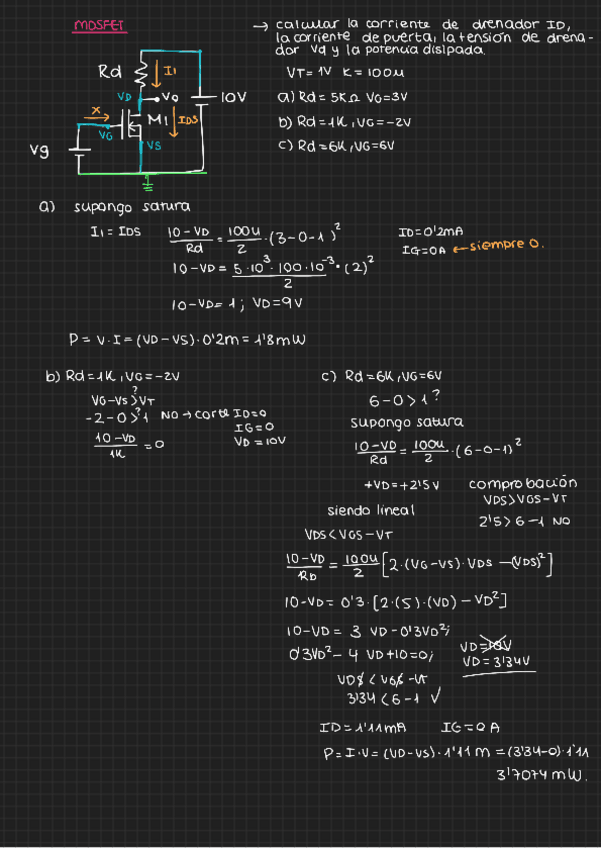 MOSFET
→ calcular la corriente de drenador ID,
la corriente de puerta, la tensión de drena-
dor Vd y la potencia disipada.
VT= 1V K = 100µ
a) Rd = 5KΩ VG=3V
b) Rd = 1K, VG=-2V
c) Rd = 6K, VG=6V
Rd
I1
VD
Vo
10V
x
VG
M1
IDS
VS
Vg
a) supongo satura
I1 = IDS
10-VD/Rd = 100u/2 · (3-0-1)²
ID=0'2mA
IG=0A ← siempre 0.
10-VD = 5·10³·100·10⁻³/2 · (2)²
10-VD= 1 ; VD=9V
P= V·I = (VD-VS)·0'2m = 1'8mW
b) Rd = 1K, VG=-2V
VG-VS >? VT
-2-0 >? 1 NO → corte ID=0
IG=0
VD = 10V
10-VD/1K = 0
c) Rd=6K, VG=6V
6-0>1?
supongo satura
10-VD/Rd = 100u/2 · (6-0-1)²
+VD=+2'5V
comprobación
VDS>VGS-VT
2'5>6-1 NO
siendo lineal
VDS<VGS-VT
10-VD/RD = 100u/2 [2·(VG-VS)·VDS-(VDS)²]
10-VD= 0'3·[2·(5)·(VD)-VD²]
10-VD= 3 VD-0'3VD²;
0'3VD²-4 VD+10=0;
VD=10V
VD=3'34V
VDS < VGS-VT
3'34 < 6-1 √
ID=1'11mA IG=0A
P=I·V= (VD-VS)·1'11m =(3'34-0)·1'11
3'7074 mW.